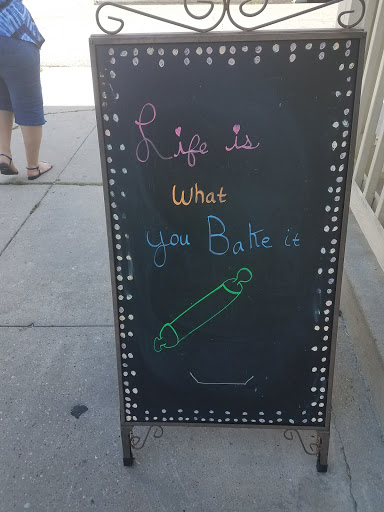 Life is
What
you Bake it